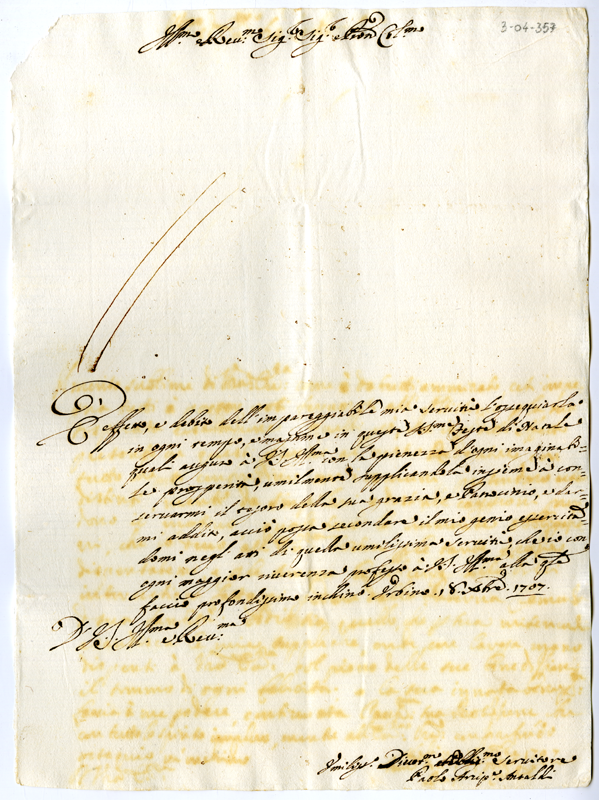 3-04-357
Ill.mo e Rev.mo Sig.r Sig.r e Pron Col.mo
È effetto, e debito dell'impareggiabile mia servitù l'ossequiarla
in ogni tempo, e massime in queste SS.me Feste di Natale
quali auguro à V.S. Ill.ma con la pienezza d'ogni imaginabi-
le prosperità, umilmente supplicandola insieme à con-
servarmi il tesoro della sua grazia, e Patrocinio, e dar-
mi addito, acciò possa secondare il mio genio esercitan-
domi negl'atti di quella umilissima servitù, che io con
ogni maggior riverenza professo à V.S. Ill.ma, alla q.le
faccio profondissimo inchino. Urbino 18 Xbre 1707.
D. V.S. Ill.ma e Rev.ma
Umiliss.o Divot.mo et Obl.mo Servitore
Paolo Arcip.e Antaldi